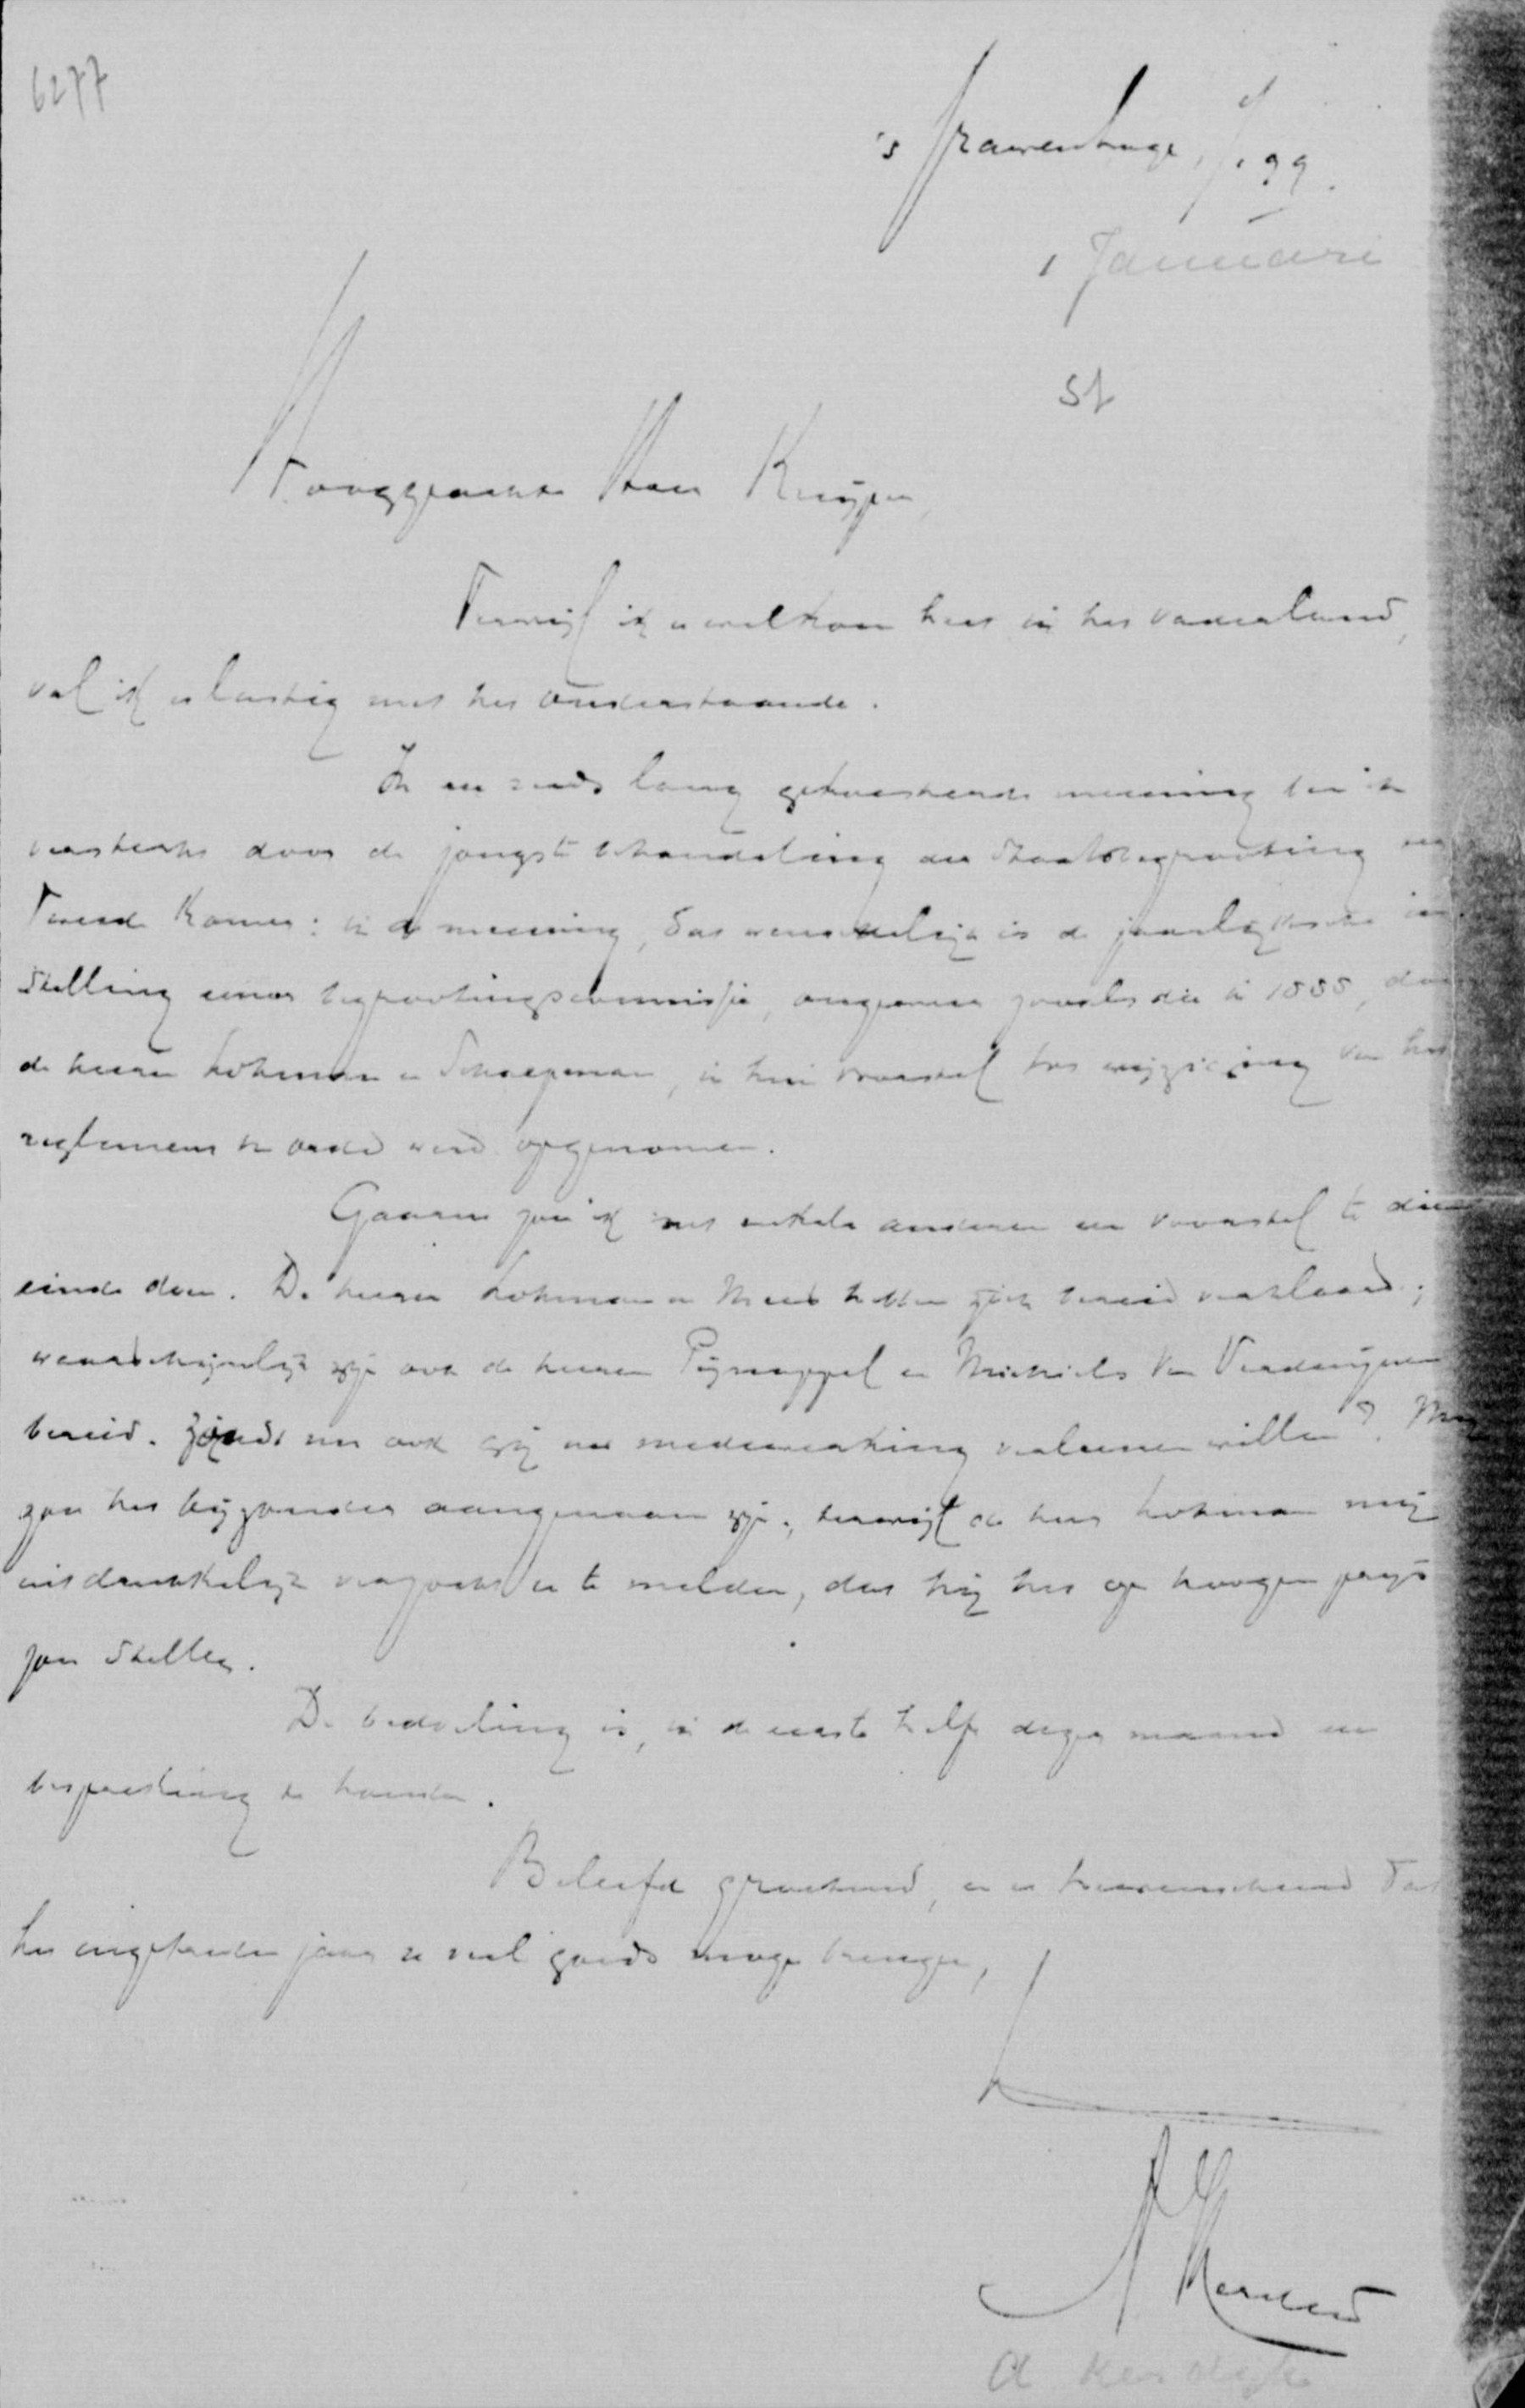 6277
's Gravenhage, 1/1 99.
1 Januari
St
Hooggeachte Heer Kuyper,
Terwijl ik u welkom heet in het vaderland,
val ik u lastig met het onderstaande.
In een reeds lang gekoesterde meening ben ik
versterkt door de jongste behandeling der Staatsbegrooting
Tweede Kamer: in de meening, dat wenschelijk is de jaarlijksche in
stelling eener begrootingscommissie, ongeveer zooals die in 1888, door
de heeren Lohman en Schaepman, in hun voorstel tot wijziging van het
reglement van orde werd opgenomen.
Gaarne zou ik met enkele anderen een voorstel te dien
einde doen. De heeren Lohman en Mees hebben zich bereid verklaard;
waarschijnlijk zijn ook de heeren Pijnappel en Michiels van Verduynen
bereid. Zoudt nu ook gij uw medewerking verleenen willen? Mij
zou het bijzonder aangenaam zijn, terwijl de heer Lohman mij
uitdrukkelijk verzocht u te melden, dat hij het op hoogen prijs
zou stellen.
De bedoeling is, in de eerste helft dezer maand een
bespreking te houden.
Beleefd groetend, en u toewenschend dat
het ingetreden jaar u veel goeds moge brengen,
A Kerdijk
A Kerdijk